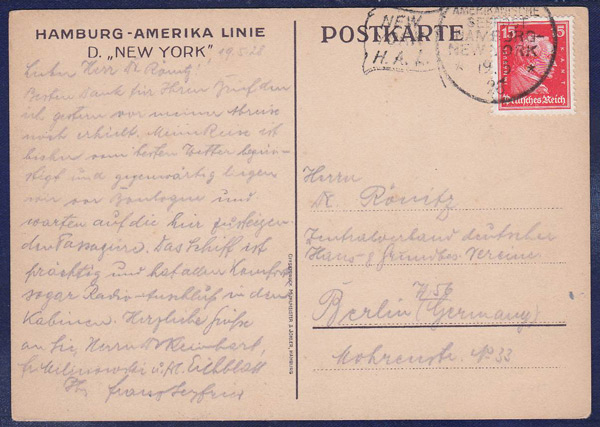 HAMBURG-AMERIKA LINIE
D. „NEW YORK”
19.5.28
Lieber Herr Dr. Rönitz!
Besten Dank für Ihren Brief den
ich gestern vor meiner Abreise
noch erhielt. Meine Reise ist
bisher vom besten Wetter begün-
stigt und gegenwärtig liegen
wir vor Boulogne und
warten auf die hier zusteigen-
den Passagiere. Das Schiff ist
prächtig und hat allen Komfort
sogar Radio-Anschluß in den
Kabinen. Herzliche Grüße
an Sie, Herrn Dr.
u. Frl. Eichblatt
Ihr
POSTKARTE
NEW
H. A. L.
AMERIKANISCHE
SEEPOST
HAMBURG-
NEW YORK
* 19. *
15 15
IMMANUEL KANT
Deutsches Reich
Herrn
Dr. Rönitz
Zentralverband deutscher
Haus- & Grundbes. Vereine
W 56
Berlin (Germany)
Mohrenstr. No 33